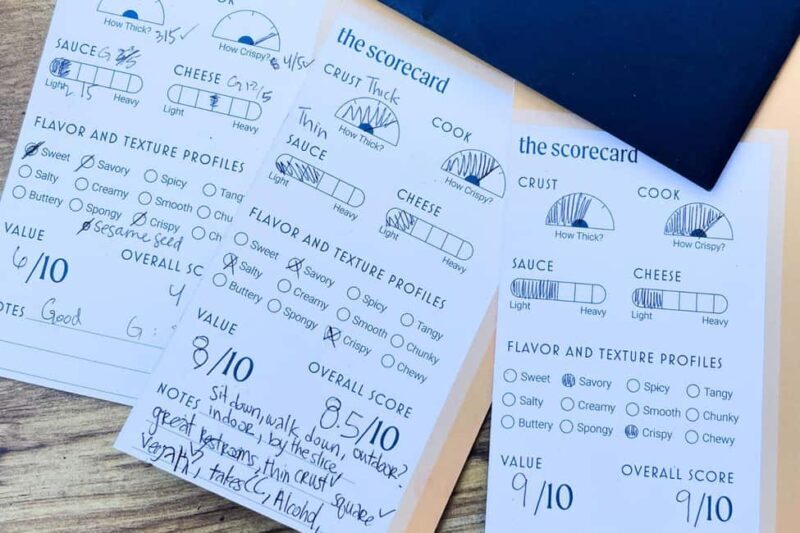 How Thick?
How Crispy?
3/5 ✓
4/5
SAUCE
CHEESE
Light
Heavy
Light
Heavy
FLAVOR AND TEXTURE PROFILES
Sweet
Savory
Spicy
Tangy
Salty
Creamy
Smooth
Chu
Buttery
Spongy
Crispy
Ch
sesame seed
VALUE
OVERALL SC
6/10
4
OTES
Good
G:
the scorecard
CRUST Thick
COOK
Thin
How Thick?
How Crispy?
SAUCE
CHEESE
Light
Heavy
Light
Heavy
FLAVOR AND TEXTURE PROFILES
Sweet
Savory
Spicy
Tangy
Salty
Creamy
Smooth
Chunky
Buttery
Spongy
Crispy
Chewy
VALUE
OVERALL SCORE
8/10
8.5/10
NOTES Sit down, walk down, outdoor?
indoor, by the slice ✓
great restrooms, thin crust ✓ square ✓
vegan ✓, takes CC, Alcohol,
the scorecard
CRUST
COOK
How Thick?
How Crispy?
SAUCE
CHEESE
Light
Heavy
Light
Heavy
FLAVOR AND TEXTURE PROFILES
Sweet
Savory
Spicy
Tangy
Salty
Creamy
Smooth
Chunky
Buttery
Spongy
Crispy
Chewy
VALUE
OVERALL SCORE
9/10
9/10